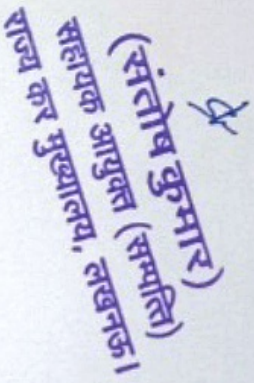 (संतोष कुमार)
सहायक आयुक्त (सम्पत्ति)
राज्य कर मुख्यालय, लखनऊ।